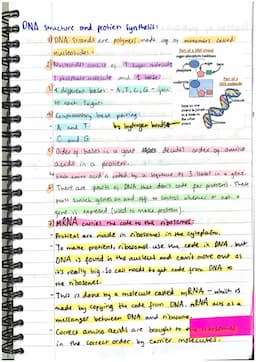 DNA Structure and protien Synthesis:
1) DNA strands are polymers made up of monomers called
nucleotides.
2) Nucleotides consist of 1 sugar molecule
1 phosphate molecule and 1 base.
3) 4 different bases - A, T, C, G - join
to each sugar.
4) Complementary base pairing:
- A and T
by hydrogen bonds
- C and G
5) Order of bases in a gene decides order of amino
acids in a protien.
6) There are parts of DNA that don't code for protiens. These
parts switch genes on and off to control whether or not a
gene is expressed (used to make protien).
7) mRNA carries the code to the ribosomes.
- Protiens are made in ribosomes in the cytoplasm.
- To make protiens, ribosomes use the code in DNA, but
DNA is found in the nucleus and can't move out as
it's really big. So cell needs to get code from DNA to
the ribosomes.
- This is done by a molecule called mRNA - which is
made by copying the code from DNA. mRNA acts as a
messenger between DNA and ribosome.
- Correct amino acids are brought to
in the correct order by carrier molecules.
Part of a DNA strand
sugar
phosphate
base
Part of a DNA molecule